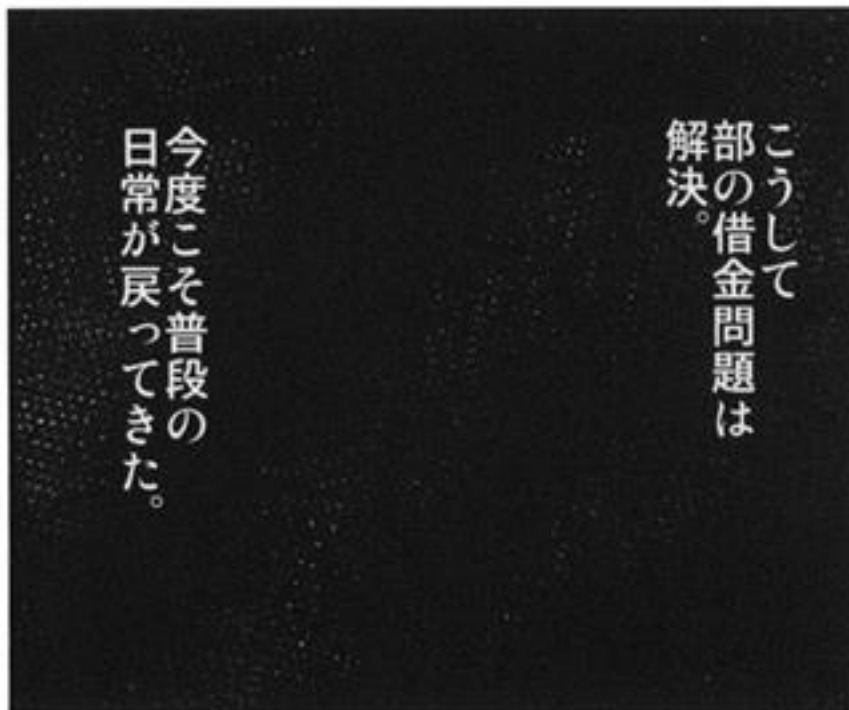 こうして
部の借金問題は
解決。
今度こそ普段の
日常が戻ってきた。